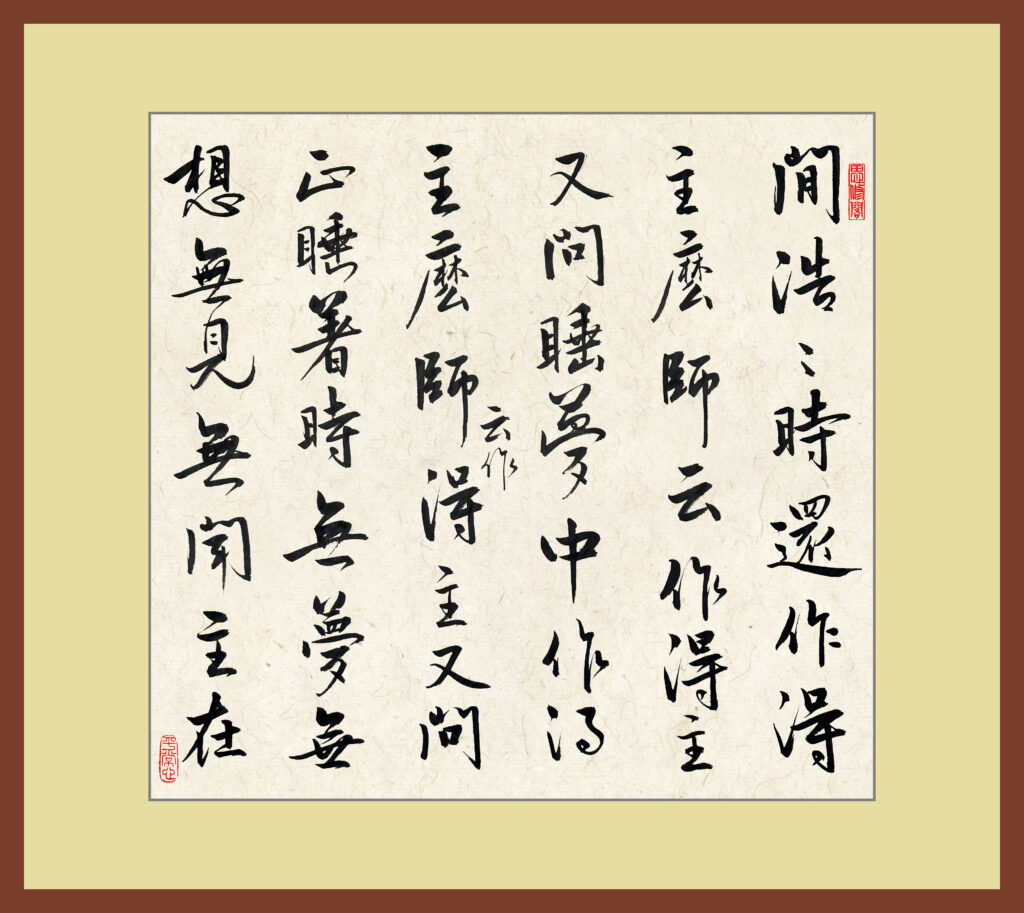 思修閣
間浩〻時還作得
主麼師云作得主
又問睡夢中作得
主麼師云作得主又問
正睡著時無夢無
想無見無聞主在
平常心